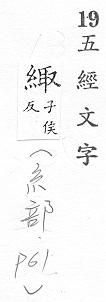 19五經文字
緅子侯反
(糸部.P61)